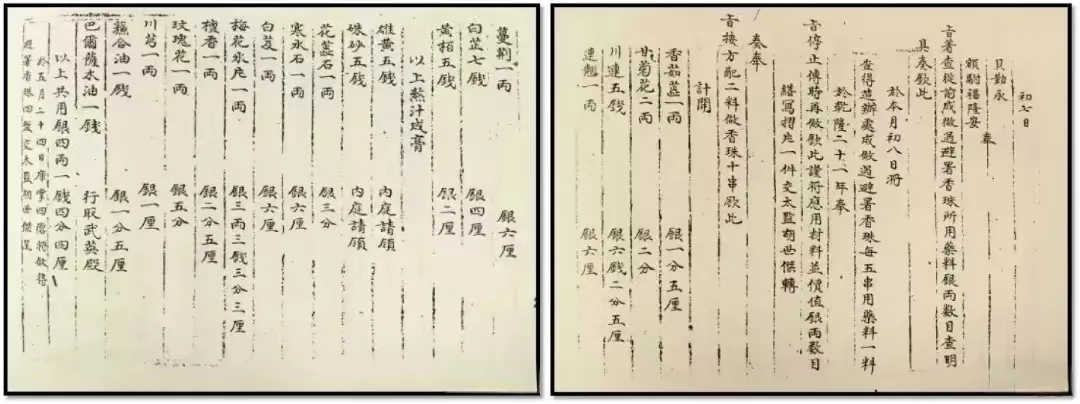 初七日
貝勒永
額駙福隆安
奉
旨著查從前成做過避暑香珠所用藥料銀兩數目查明
具奏欽此
於本月初八日将
查得造辦處成做過避暑香珠每五串用藥料一料
於乾隆二十一年奉
旨停止傳時再做欽此謹將應用材料並價值銀兩數目
繕寫摺片一件交太監胡世傑轉
奏奉
旨按方配二料做香珠十串欽此
計開
香茹藍一兩 銀一分五厘
甘菊花二兩 銀二分
川連五錢 銀六錢二分五厘
連翹一兩 銀六厘
蔓荊一兩 銀六厘
白芷七錢 銀四厘
黃栢五錢 銀二厘
以上熬汁成膏
雄黃五錢 內庭請領
硃砂五錢 內庭請領
花蕊石一兩 銀三分
寒水石一兩 銀六厘
白芨一兩 銀六厘
梅花氷片一兩 銀三兩三錢三分三厘
檀香一兩 銀二分五厘
玫瑰花一兩 銀五分
川芎一兩 銀一厘
蘓合油一錢 銀一分五厘
巴爾薩木油一錢 行取武英殿
以上共用銀四兩一錢四分四厘
於五月二十四日庫掌四德將做得
避暑香珠四盤交太監胡世傑呈